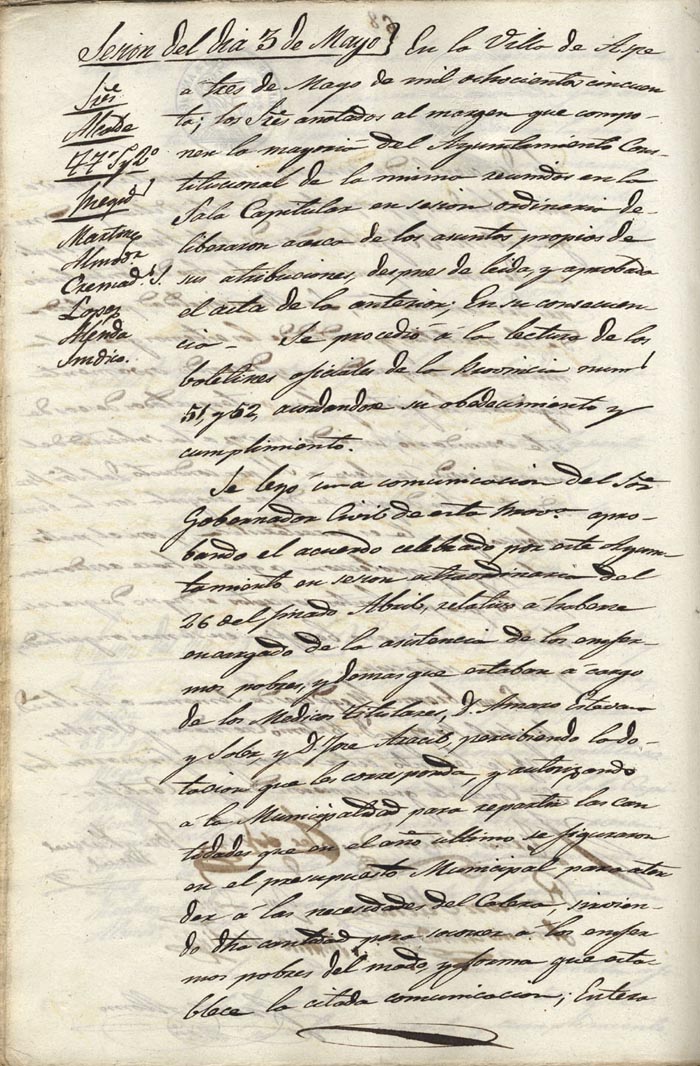 Sesion del dia 3 de Mayo} En la Villa de Aspe
a tres de Mayo de mil ochocientos cincuen
ta; los Sres anotados al margen que compo-
nen la mayoria del Ayuntamiento Cons-
titucional de la misma reunidos en la
Sala Capitular en sesion ordinaria de-
liberaron acerca de los asuntos propios de
sus atribuciones, despues de leida, y aprobada
el acta de la anterior; En su consecuen-
cia = Se procedió á la lectura de los
boletines oficiales de la Provincia num.s
51, y 52, acordandose su obedecimiento y
cumplimiento.
Sres
Alcalde
TT. 1º y 2º
Regid.s
Martinez
Almodor
Cremad.s
Lopez
Alenda
Sindico.
Se leyó una comunicacion del Sor
Gobernador Civil de esta Prova apro-
bando el acuerdo celebrado por este Ayun-
tamiento en sesion extraordinaria del
26 del finado Abril, relativo á haberse
encargado de la asistencia de los enfer-
mos pobres, y demas que estaban á cargo
de los Medicos titulares, D. Amaro Estevan
y Soler, y D. Jose Aracil, percibiendo la do-
tacion que les corresponda, y autorizando
á la Municipalidad para repartir las can
tidades que en el año ultimo se figuraron
en el presupuesto Municipal para aten
der á las necesidades del Colera, sirvien-
do dha cantidad para socorrer á los enfer
mos pobres del modo, y forma que esta-
blece la citada comunicacion; Entera